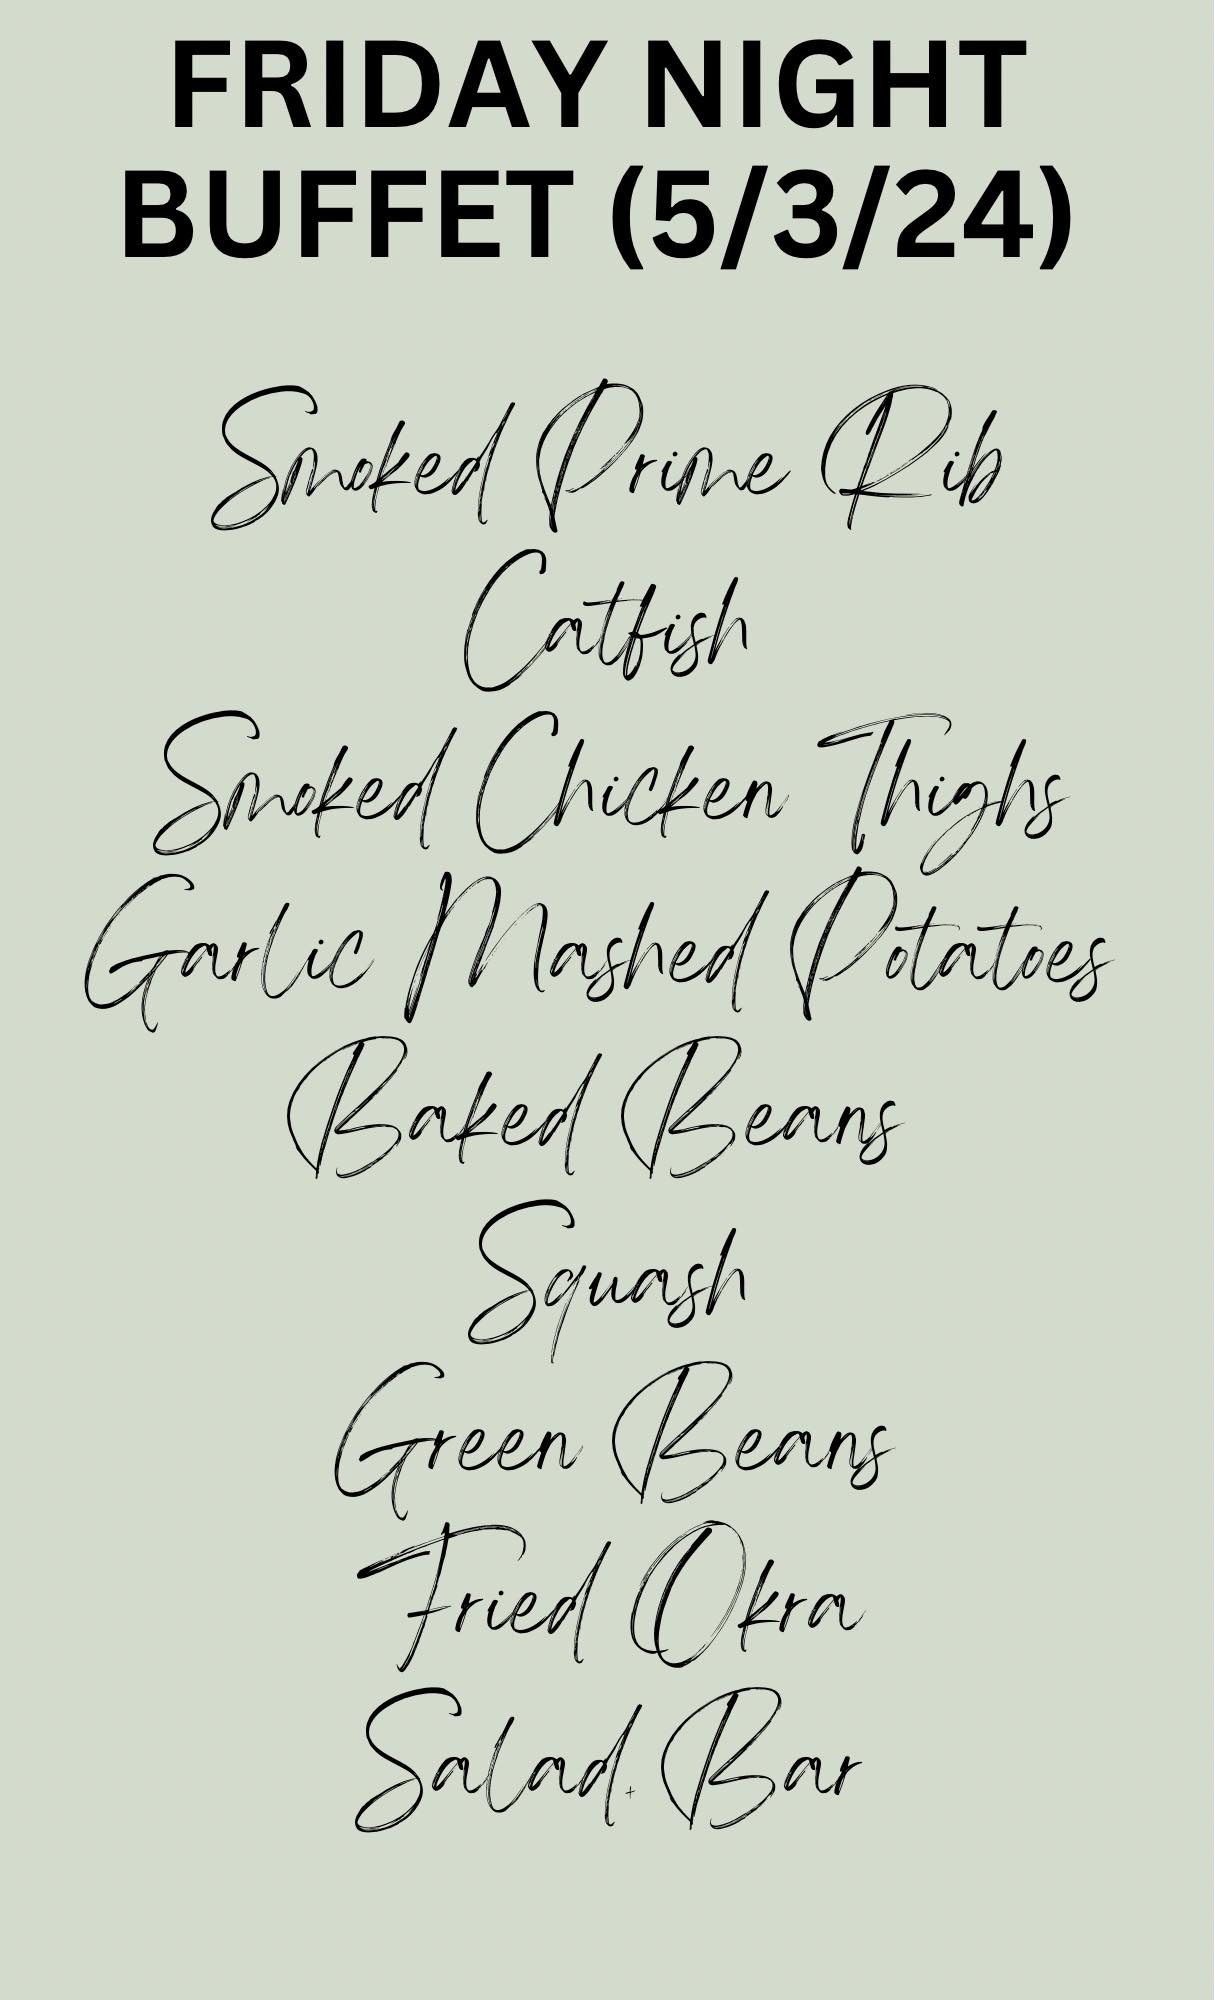 FRIDAY NIGHT
BUFFET (5/3/24)
Smoked Prime Rib
Catfish
Smoked Chicken Thighs
Garlic Mashed Potatoes
Baked Beans
Squash
Green Beans
Fried Okra
Salad Bar